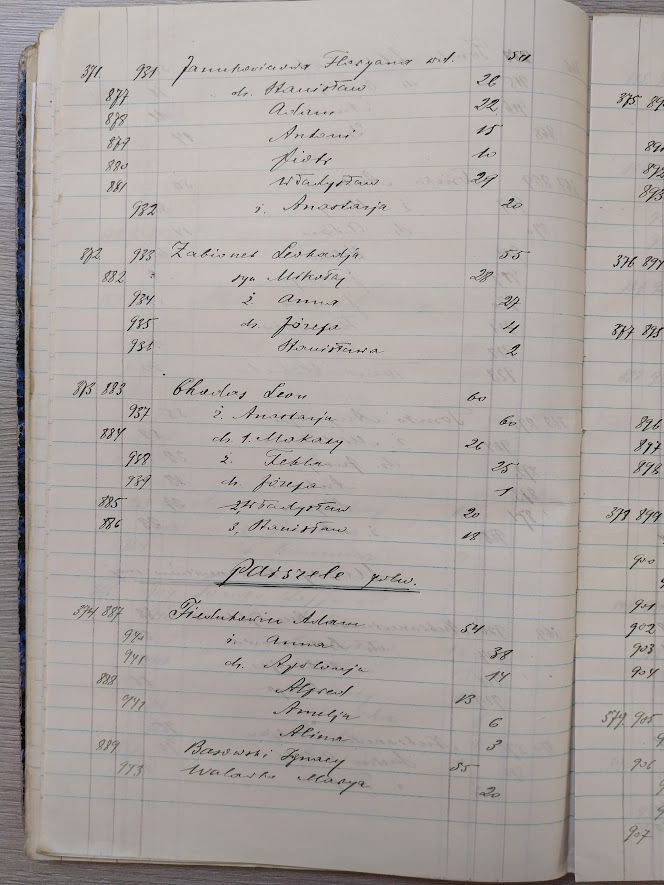 371 931 Janukowiczowa Floryana wd. 50
877 dz. Stanisław 26
878 Adam 22
879 Antoni 15
880 Piotr 10
881 Władysław 29
932 ż. Anastazja 20
872 933 Leokadja 55
882 syn Mikołaj 28
934 ż Anna 27
935 dz. Józefa 4
936 Stanisława 2
873 883 Chodas Leon 60
937 ż. Anastazja 60
884 dz. 1. Makary 26
938 ż. Tekla 25
939 dz. Józefa 1
885 2. Władysław 20
886 3, Stanisław 18
Paiszele
374 887 Adam 54
940 ż. Anna 38
941 dz. Apolonja 14
888 Alfred 13
942 Amelja 6
Alina 3
889 Ignacy 55
943 Marya 20
375
376
377 895
896
897
898
379 899
900
901
902
903
904
579 905
906
907